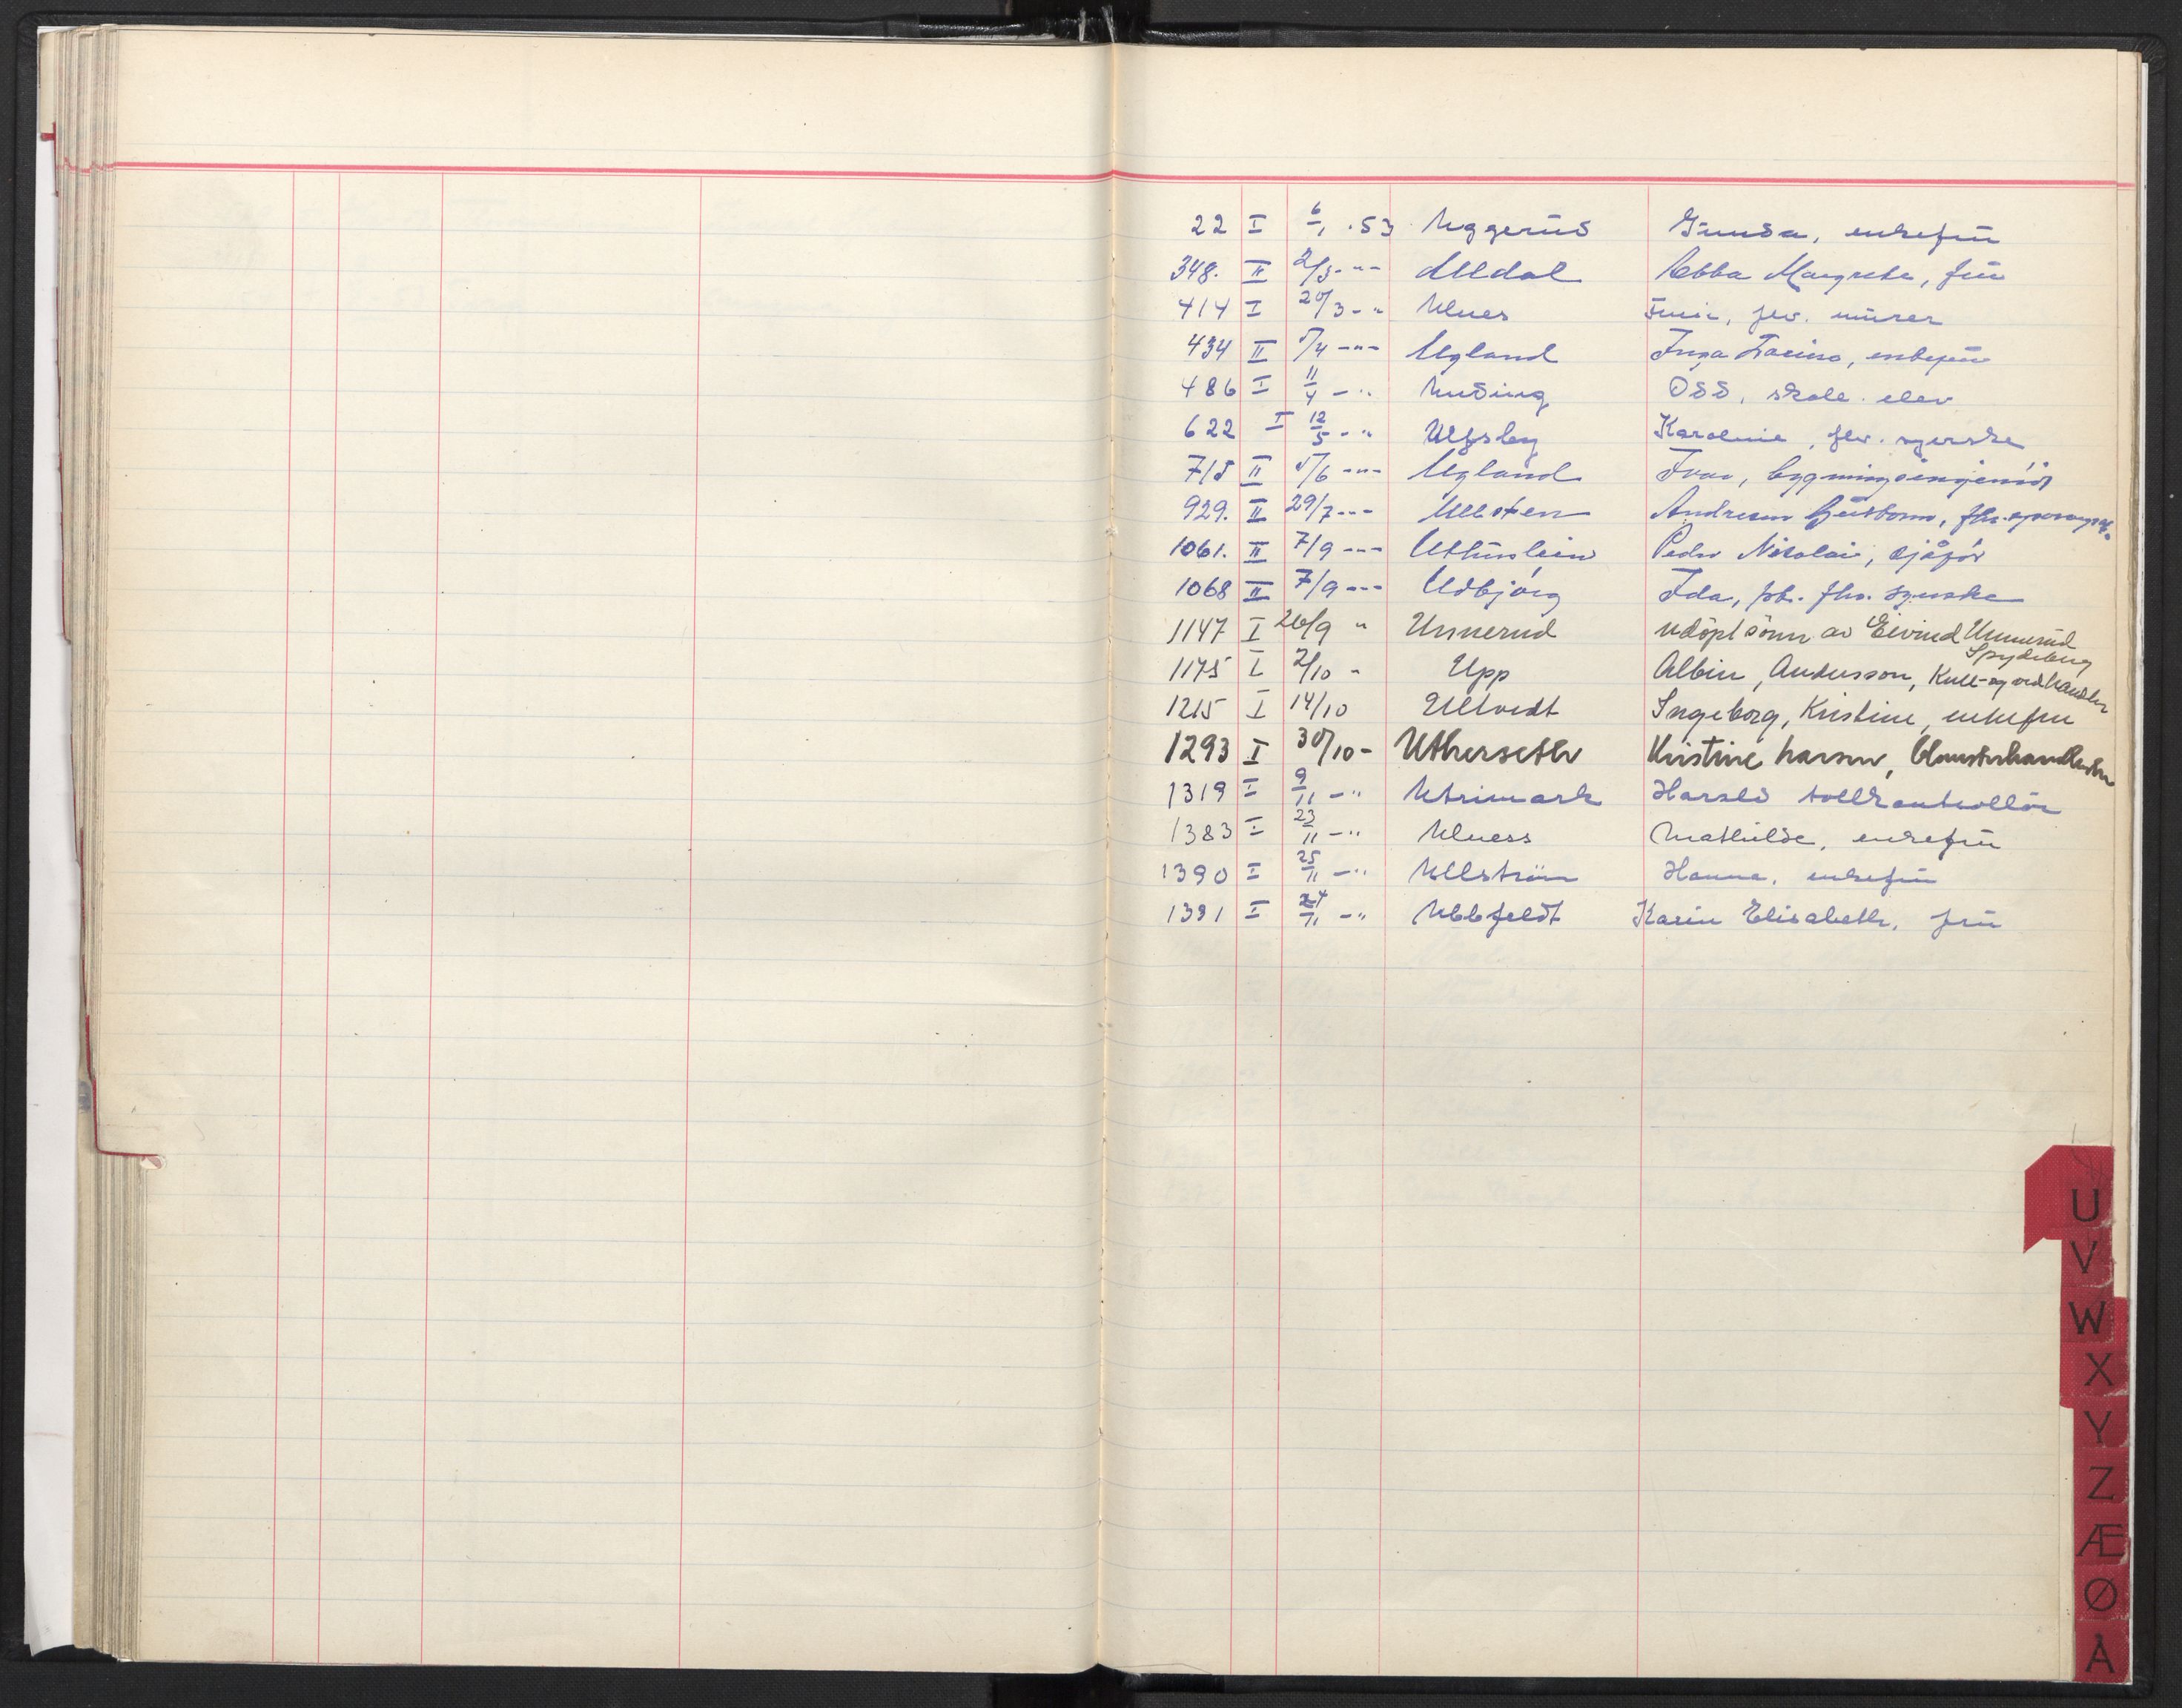 22 I 6/1 .53 Uggerud Gunda, enkefru
348. II 2/3 -"- Uldal Ebba Margrethe, fru
414 I 20/3 - " Ulnes fhv. murer
434 II 5/4 -"- Ugland Inga enkefru
486 I 11/4 - " Unding Odd, skole elev
622 I 12/5 - " Ulfsby Karoline, fhv. syerske
715 II 5/6 -"- Ugland Ivar, bygningsingeniör
929. II 29/7 -"- Ullsten Andreas
1061. II 7/9 -"- Peder Nikolai, sjåför
1068 II 7/9 -"- Udbjörg Ida, fhv. syerske
1147 I 26/9 " Unnerud udöpt sönn av Eivind Unnerud
Spydeberg
1175 I 2/10 - Upp Albin, Andersson, Kull- og vedhandler
1215 I 14/10 Ulltvedt Ingeborg, Kristine, enkefru
1293 I 30/10 - Utherseth Kristine Larsen, blomsterhandlerske
1319 I 9/11 - " Utrimark Harald tollkontrollör
1383 I 23/11 - " Ulness Mathilde, enkefru
1390 I 25/11 - " Ullström Hanna, enkefru
1391 I 24/11 - " Ubbfeldt Karin Elisabeth, fru
U
V
W
X
Y
Z
Æ
Ø
Å